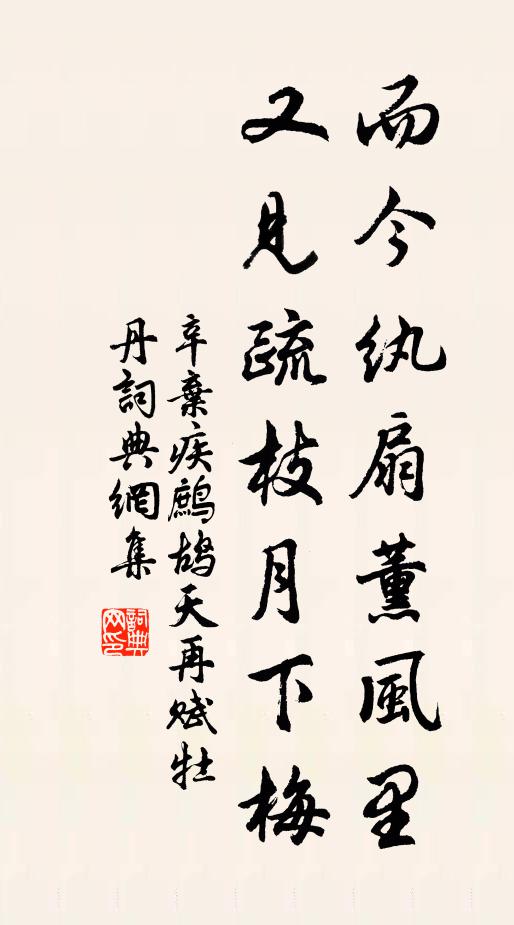 而今紈扇薰風里
又見疏枝月下梅
辛棄疾鷓鴣天再赋牡
丹詞典網集
詞典網印